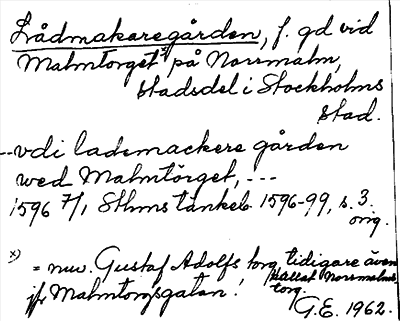 Lådmakaregården, f. gd vid
Malmtorget x) på Norrmalm,
stadsdel i Stockholms
stad.
--vdi lademackere gården
wed Malmtörget, ---
1596 7/1 Sthms tänkeb. 1596-99, s. 3.
orig.
x) = nuv. Gustaf Adolfs torg, tidigare även
kallat Norrmalms
torg.
jfr Malmtorgsgatan!
G.E. 1962.